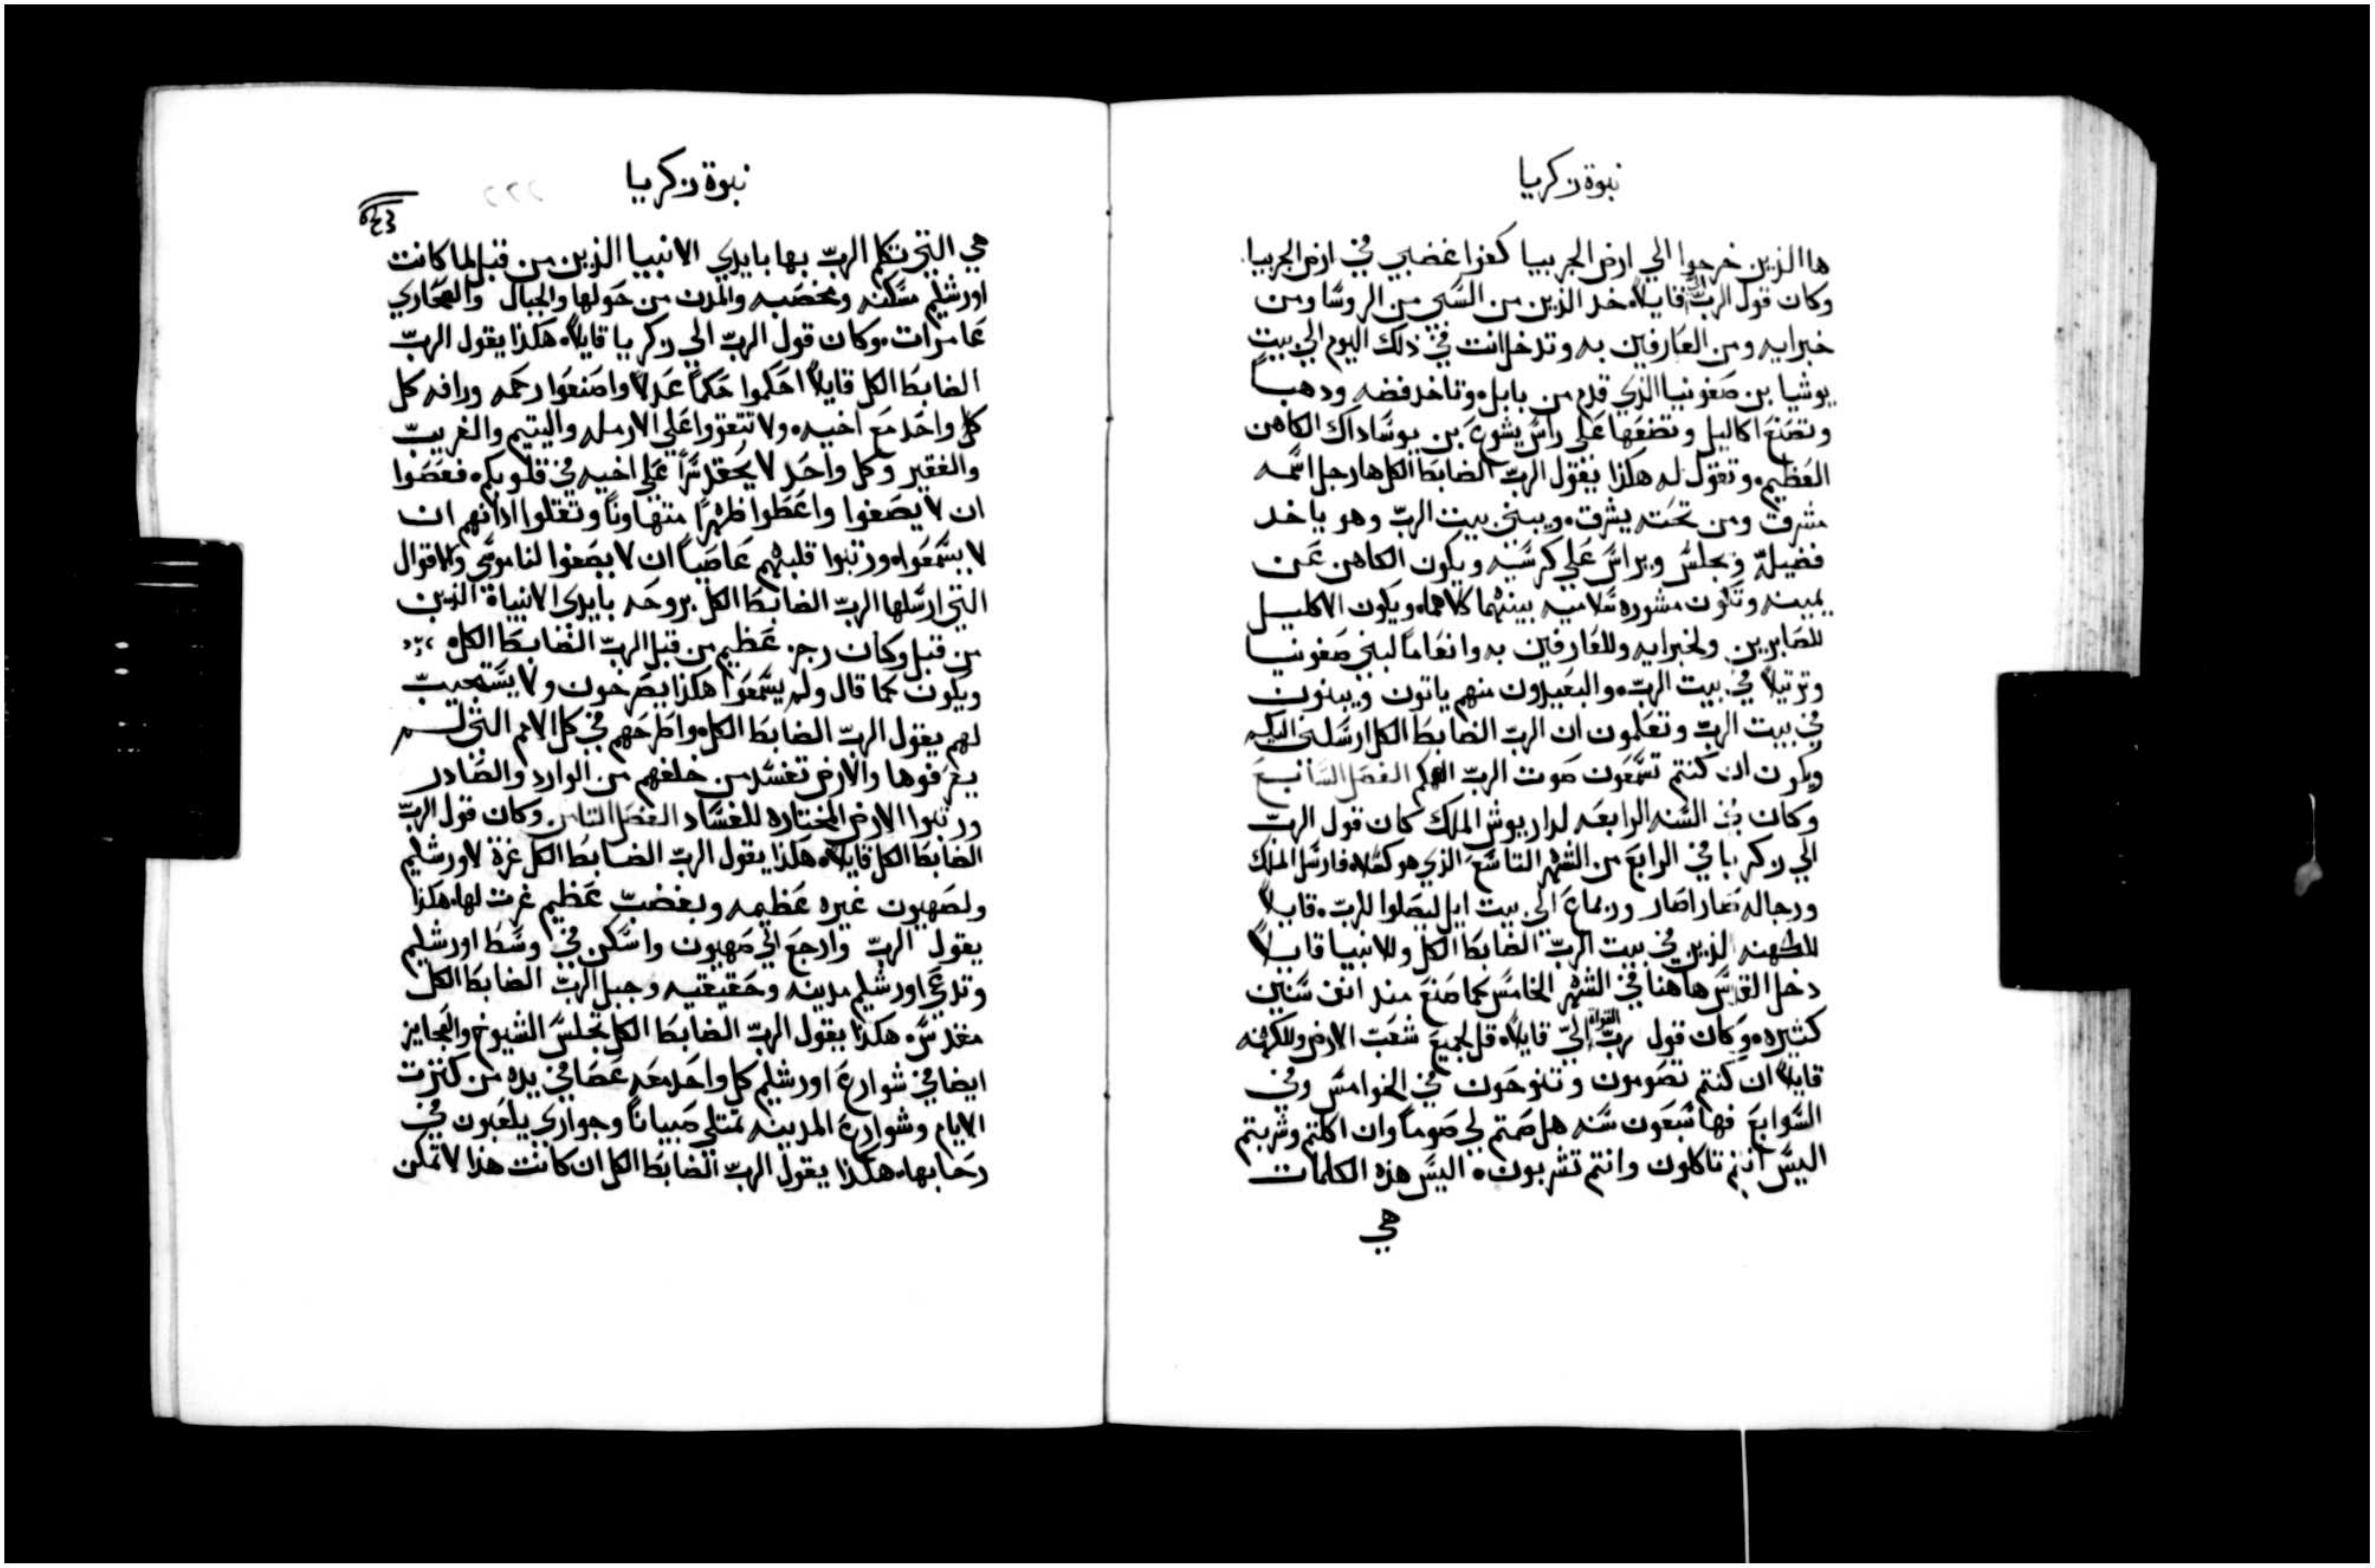 نبوة زكريا
ها الذين خرجوا الي ارض الجربيا كفوا غضبي في ارض الجربيا
وكان قول الرب الي قايلاً خد الذين من السبي من الروسا ومن
خبرايه ومن العارفين به وتدخل انت في ذلك اليوم الي بيت
يوشيا بن صفونيا الذي قدم من بابل وتاخد فضه ودهباً
وتصنع اكاليل وتضعها علي راس يشوع بن يوساداك الكاهن
العظيم وتقول له هكذا يقول الرب الضابط الكل ها رجل اسمه
مشرق ومن تحته يشرق ويبني بيت الرب وهو ياخد
فضيله ويجلس ويراس علي كرسيه ويكون الكاهن عن
يمينه وتكون مشوره سلاميه بينهما كلاهما ويكون الاكليل
للصابرين ولخبرايه وللعارفين به وانعاماً لبني صفونيا
وترتيلاً في بيت الرب والبعيدون منهم ياتون ويبنون
في بيت الرب وتعلمون ان الرب الضابط الكل ارسلني اليكم
ويكون ان كنتم تسمعون صوت الرب الهكم الفصل السابع
وكان في السنه الرابعه لداريوش الملك كان قول الرب
الي زكريا في الرابع من الشهر التاسع الذي هو كسلا فارسل الملك
ورجاله صاراصار وربماع الي بيت ايل ليصلوا للرب قايلاً
للكهنه الذين في بيت الرب الضابط الكل وللانبيا قايلاً
دخل القدس هاهنا في الشهر الخامس كما صنع مند انفن سنين
كثيره وكان قول رب القوات الي قايلاً قل لجميع شعب الارض وللكهنه
قايلاً ان كنتم تصومون وتنوحون في الخوامس وفي
السوابع فها سبعون سنه هل صمتم لي صوماً وان اكلتم وشربتم
اليس انتم تاكلون وانتم تشربون اليس هذه الكلمات
هي
نبوة زكريا
هي التي تكلم الرب بها بايدي الانبيا الذين من قبل لما كانت
اورشليم مسكنه ومخصبه والمدن من حولها والجبال والصحاري
عامرات وكان قول الرب الي زكريا قايلاً هكذا يقول الرب
الضابط الكل قايلاً احكموا حكماً عدلاً واصنعوا رحمه ورافه كل
كل واحد مع اخيه ولا تتعزوا علي الارمله واليتيم والغريب
والفقير وكل واحد لا يحقد شراً علي اخيه في قلوبكم فعصوا
ان لا يصغوا واعطوا ظهراً متهاوناً وثقلوا ادانهم ان
لا يسمعوا ورتبوا قلبهم عاصياً ان لا يصغوا لناموسي والاقوال
التي ارسلها الرب الضابط الكل بروحه بايدي الانبياة الذين
من قبل وكان رجز عظيم من قبل الرب الضابط الكل
ويكون كما قال ولم يسمعوا هكذا يصرخون ولا يستجيب
لهم يقول الرب الضابط الكل واطرحهم في كل الامم التي لم
يعرفوها والارض تفسد من خلفهم من الوارد والصادر
ورتبوا الارض المختاره للفساد الفصل الثامن وكان قول الرب
الضابط الكل قايلاً هكذا يقول الرب الضابط الكل غرة لاورشليم
ولصهيون غيره عظيمه وبغضب عظيم غرت لها هكذا
يقول الرب وارجع الي صهيون واسكن في وسط اورشليم
وتدعي اورشليم مدينه وحقيقتيه وجبل الرب الضابط الكل
مقدس هكذا يقول الرب الضابط الكل تجلس الشيوخ والعجايز
ايضا في شوارع اورشليم كل واحد معه عصا في يده من كثرت
الايام وشوارع المدينه تمتلي صبياناً وجواري يلعبون في
رحابها هكذا يقول الرب الضابط الكل ان كانت هذا لا تمكن